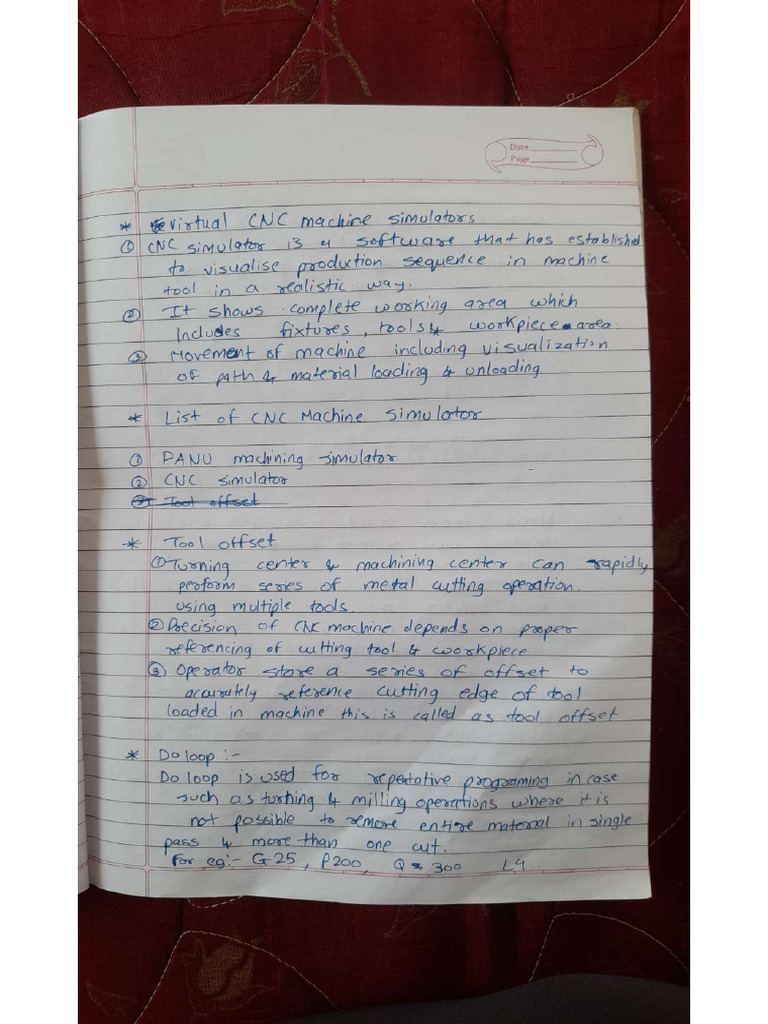 Date
Page
* virtual CNC machine simulators
① CNC simulator is a software that has established
to visualise production sequence in machine
tool in a realistic way.
② It shows complete working area which
Includes fixtures, tools & workpiece area.
③ Movement of machine including visualization
of path & material loading & unloading
* List of CNC Machine Simulator
① PANU machining simulator
② CNC simulator
③ Tool offset
* Tool offset
① Turning center & machining center can rapidly
perform series of metal cutting operation.
using multiple tools.
② Precision of CNC machine depends on proper
referencing of cutting tool & workpiece
③ Operator store a series of offset to
accurately reference cutting edge of tool
loaded in machine this is called as tool offset
* Do loop :-
Do loop is used for repeatative programing in case
such as turning & milling operations where it is
not possible to remove entire material in single
pass & more than one cut.
For eg:- G25, P200, Q 300 L4